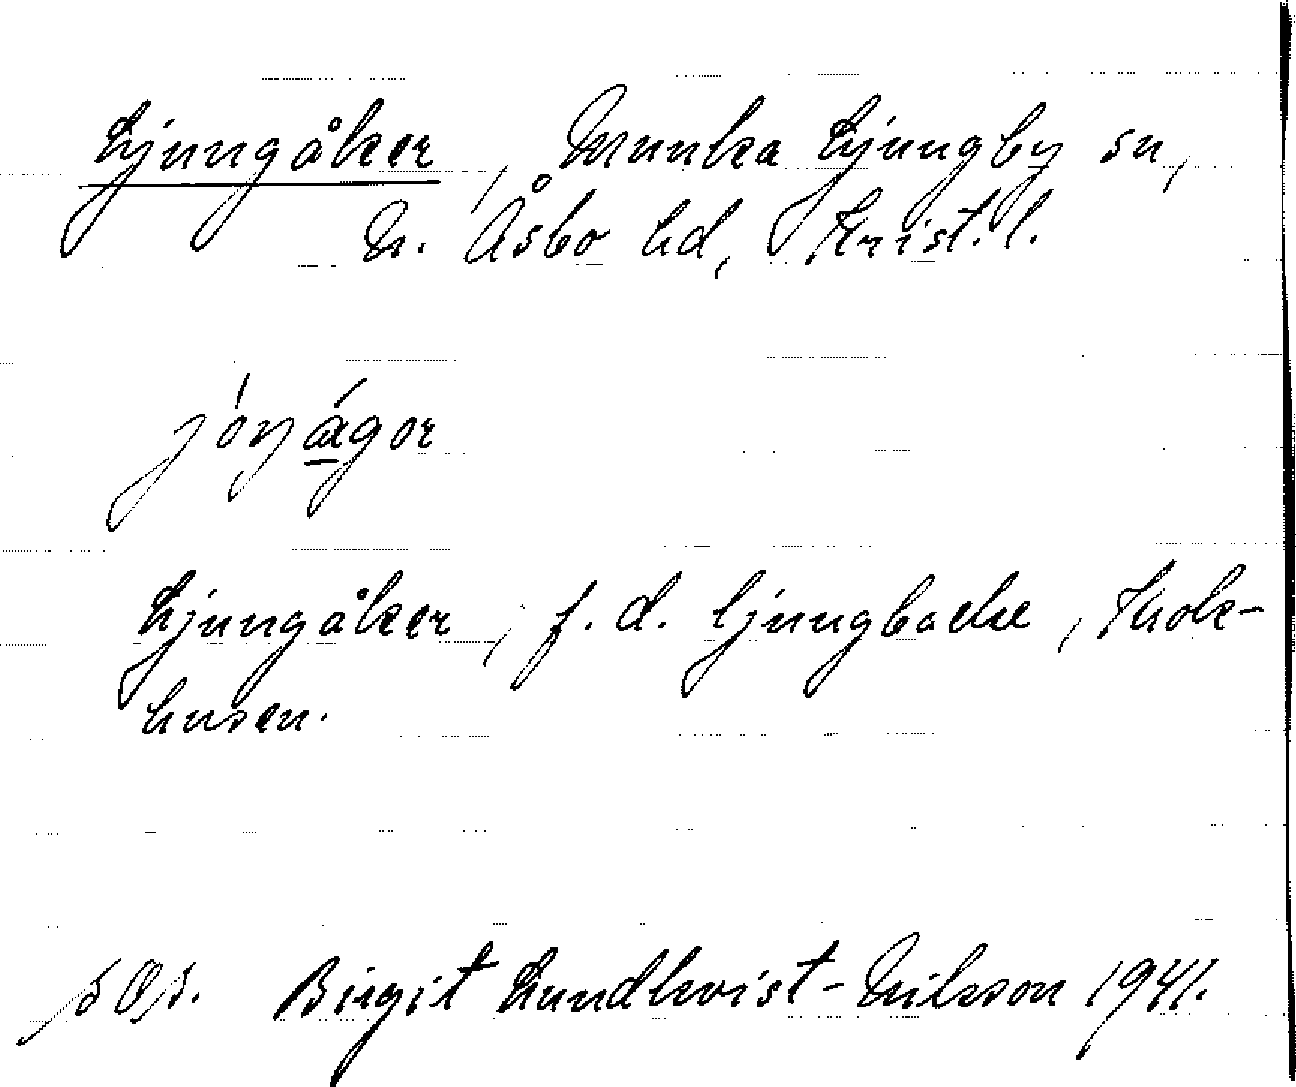 Ljungåker, Munka Ljungby sn,
N. Åsbo hd, Krist. l.
jóŋágor
Ljungåker, f. d. Ljungbacke, Skok-
husen.
Birgit Lundkvist-Nilsson 1941.